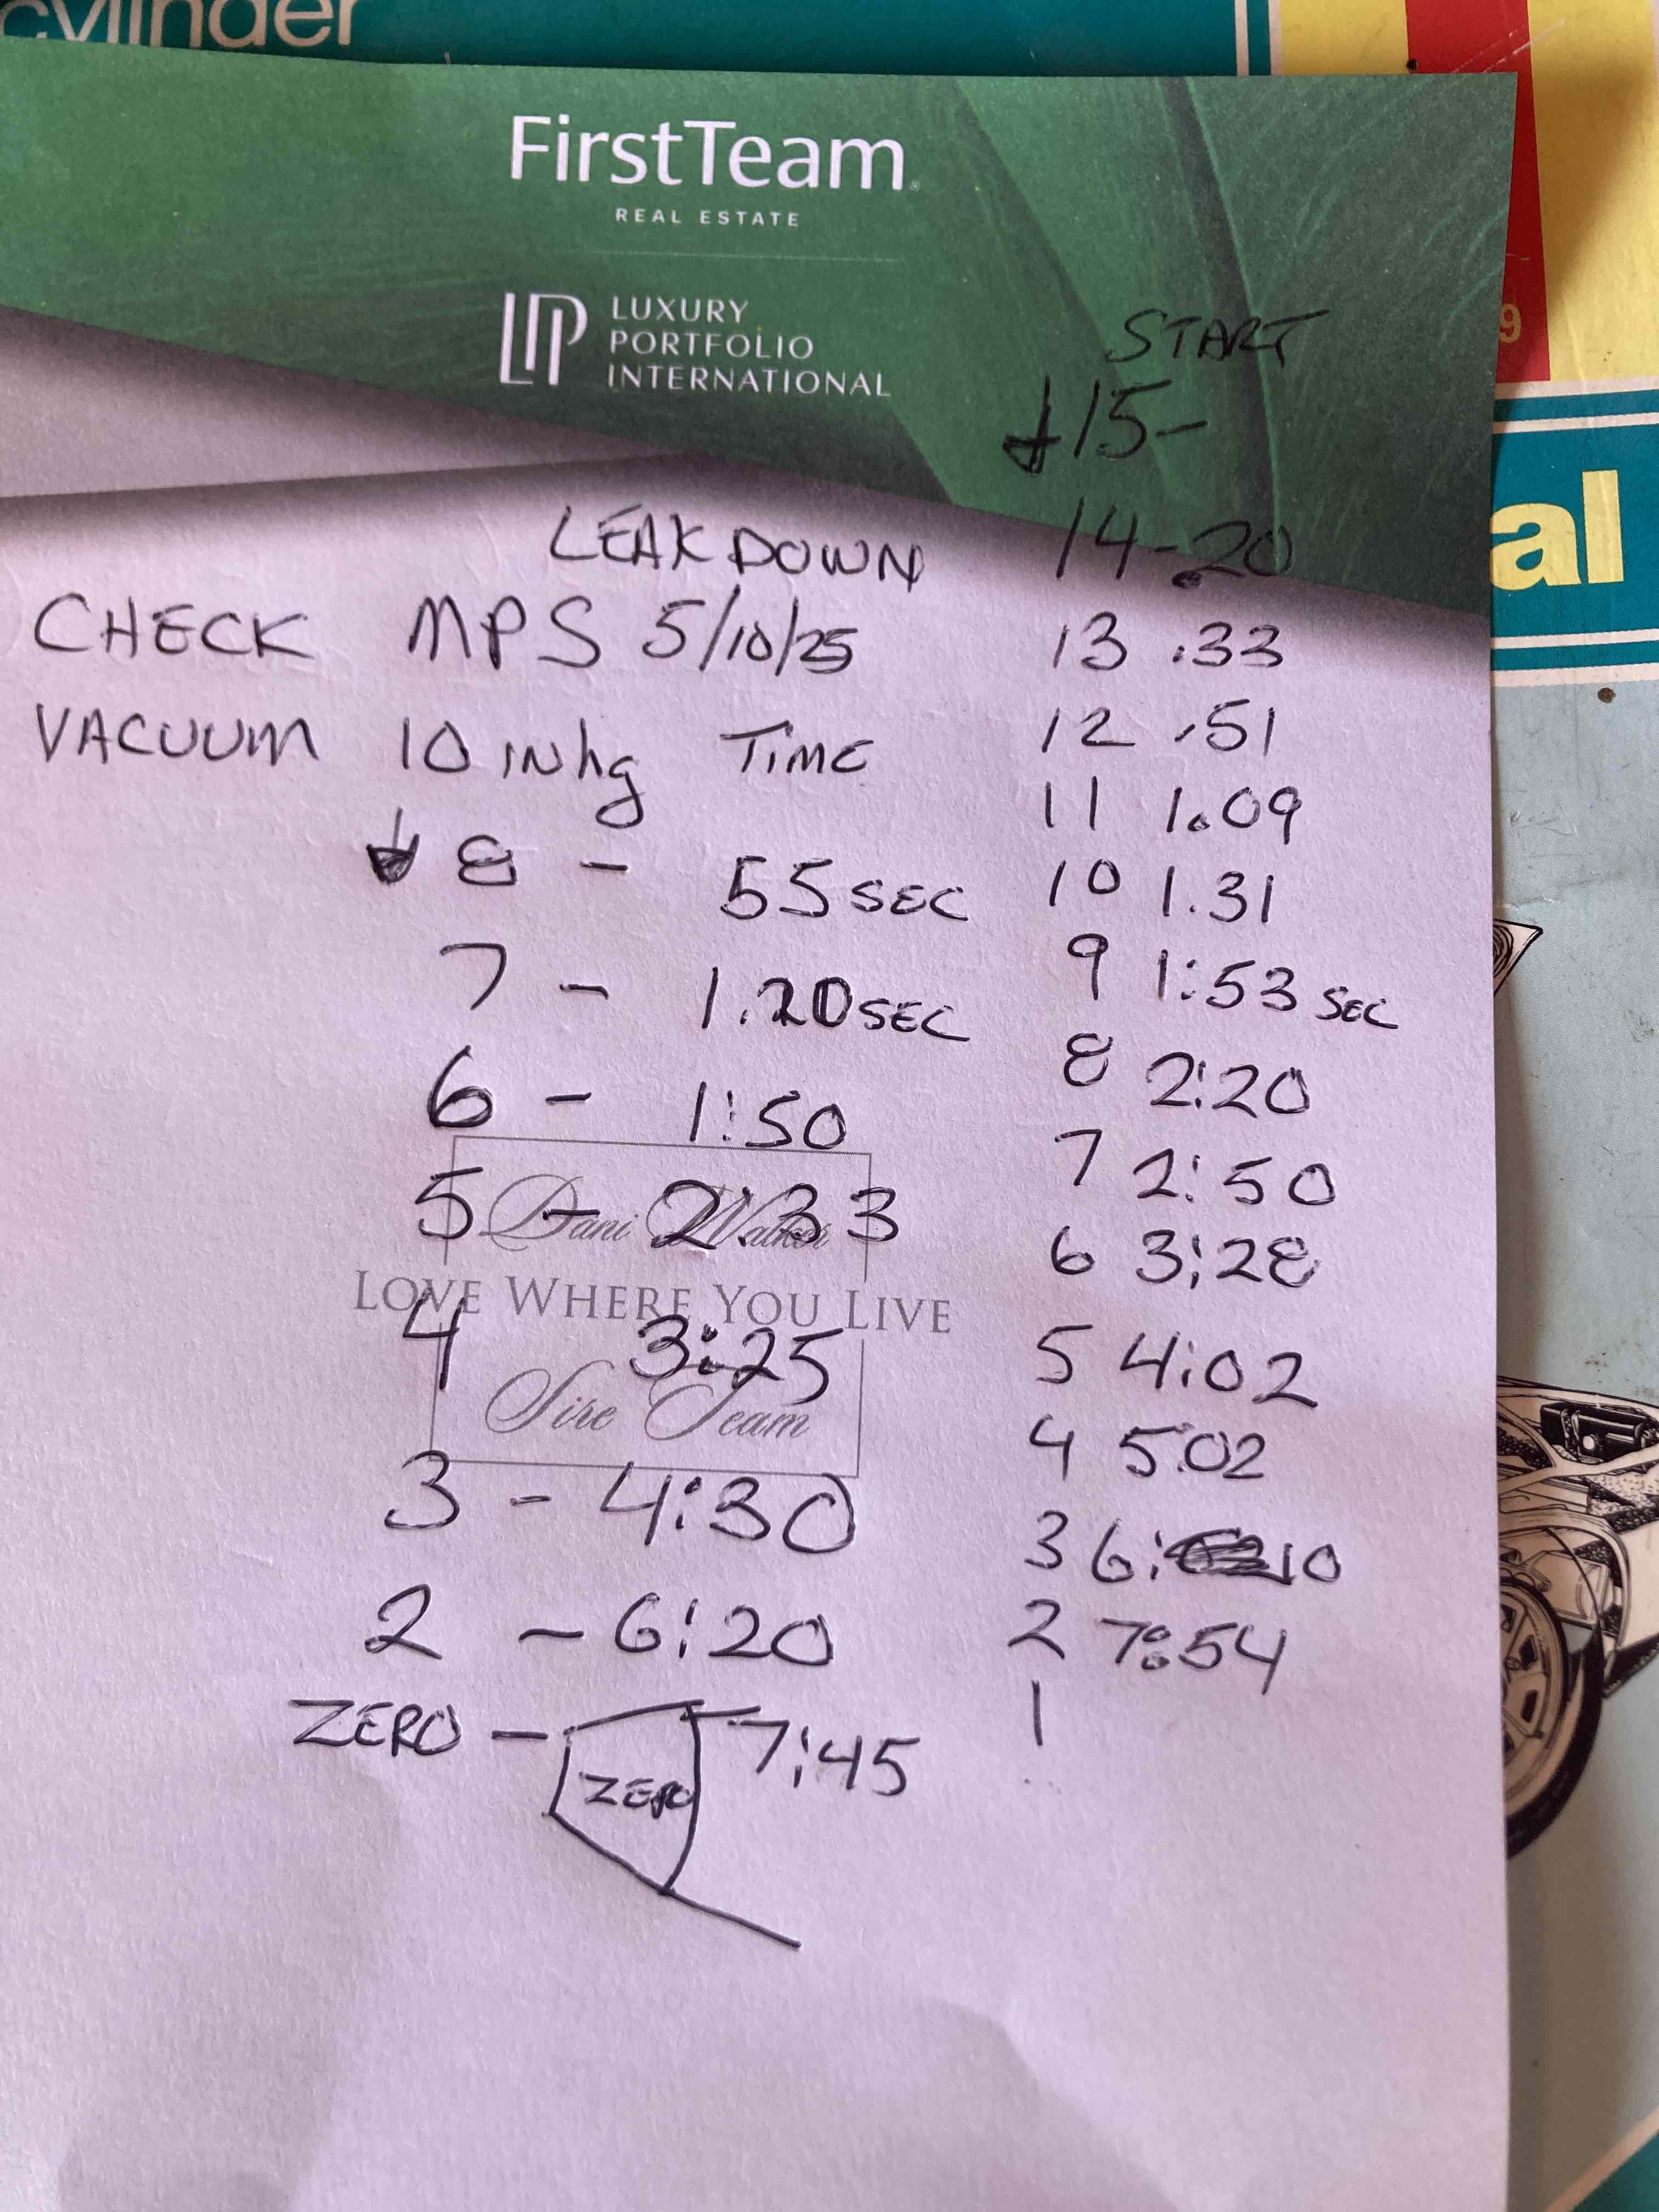 cylinder
FirstTeam
REAL ESTATE
LP LUXURY
PORTFOLIO
INTERNATIONAL
9
al
LEAKDOWN
CHECK MPS 5/10/25
VACUUM 10 INhg TIME
8 - 55 SEC
7 - 1.20 SEC
6 - 1:50
5 - 2:33
Dani Walker
LOVE WHERE YOU LIVE
4 3:25
Sire Team
3 - 4:30
2 - 6:20
ZERO - ZERO 7:45
START
15-
14-.20
13 .33
12 .51
11 1.09
10 1.31
9 1:53 SEC
8 2:20
7 2:50
6 3:28
5 4:02
4 5:02
3 6:10
2 7:54
1